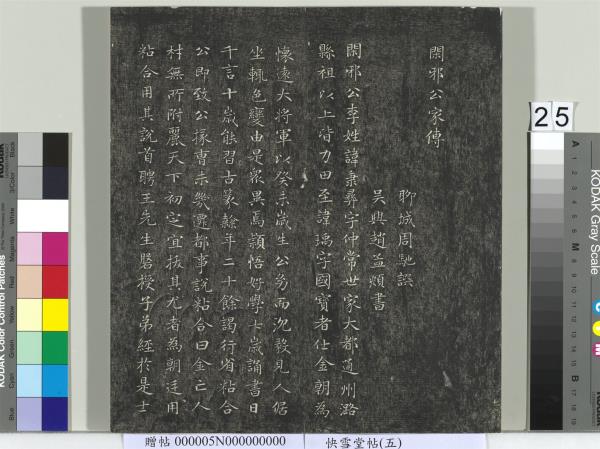 閑邪公家傳
聊城周馳譔
吳興趙孟頫書
閑邪公李姓諱秉彝字仲常世家大都通州潞
縣祖以上皆力田至諱瑀字國寶者仕金朝為
懷遠大將軍以癸未歲生公㓜而沉毅見人倨
坐輒色變由是眾異焉穎悟好學七歲誦書日
千言十歲能習古篆餘年二十餘謁行省粘合
公即致公掾曹未幾遷都事說粘合曰金亡人
材無所附麗天下初定宜拔其尤者為朝廷用
粘合用其說首聘王先生磐授子弟經於是士
25
贈帖 000005N000000000
快雪堂帖(五)
KODAK Gray Scale
A
M
B
KODAK Color Control Patches
Blue
Cyan
Green
Yellow
Red
Magenta
White
3/Color
Black